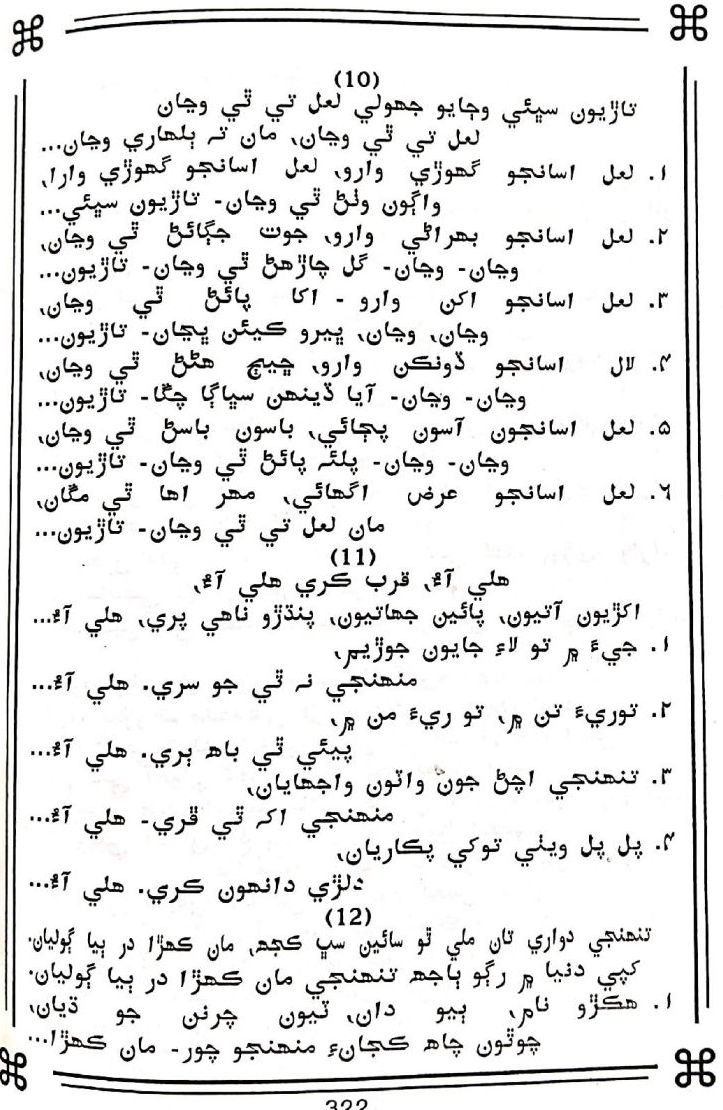 (10)
تاڙيون سڀئي وڄايو جهولي لعل تي ٿي وڃان
لعل تي ٿي وڃان، مان تہ ٻلهاري وڃان...
۱. لعل اسانجو گهوڙي وارو، لعل اسانجو گهوڙي وارا،
واڳون وٺڻ ٿي وڃان۔ تاڙيون سڀئي...
۲. لعل اسانجو بهراڻي وارو، جوت جڳائڻ ٿي وڃان،
وڃان۔ وڃان۔ گل چاڙهڻ ٿي وڃان۔ تاڙيون...
۳. لعل اسانجو اکن وارو - اکا پائڻ ٿي وڃان،
وڃان، وڃان، ڀيرو ڪيئن ڀڃان۔ تاڙيون...
۴. لال اسانجو ڏونڪن وارو، ڇيڄ هڻڻ ٿي وڃان،
وڃان۔ وڃان۔ آيا ڏينهن سڀاڳا چڱا۔ تاڙيون...
۵. لعل اسانجون آسون پڄائي، باسون باسڻ ٿي وڃان،
وڃان۔ وڃان۔ پلئہ پائڻ ٿي وڃان۔ تاڙيون...
٦. لعل اسانجو عرض اگهائي، مهر اها ٿي مڱان،
مان لعل تي ٿي وڃان۔ تاڙيون...
(11)
هلي آءُ، قرب ڪري هلي آءُ،
اکڙيون آتيون، پائين جهاتيون، پنڌڙو ناهي پري، هلي آءُ...
۱. جيءَ ۾ تو لاءِ جايون جوڙيم،
منهنجي نہ ٿي جو سري. هلي آءُ...
۲. توريءَ تن ۾، تو ريءَ من ۾،
پيئي ٿي باهه ٻري. هلي آءُ...
۳. تنهنجي اچڻ جون واٽون واجهايان،
منهنجي اکہ ٿي ڦري۔ هلي آءُ...
۴. پل پل ويٺي توکي پڪاريان،
دلڙي دانهون ڪري. هلي آءُ...
(12)
تنهنجي دواري تان ملي ٿو سائين سڀ ڪجهه، مان ڪهڙا در ٻيا ڳوليان.
کپي دنيا ۾ رڳو ٻاجهه تنهنجي مان ڪهڙا در ٻيا ڳوليان.
۱. هڪڙو نام، ٻيو دان، ٽيون چرنن جو ڌيان،
چوٿون چاهه ڪڃانءِ منهنجو چور۔ مان ڪهڙا...
322